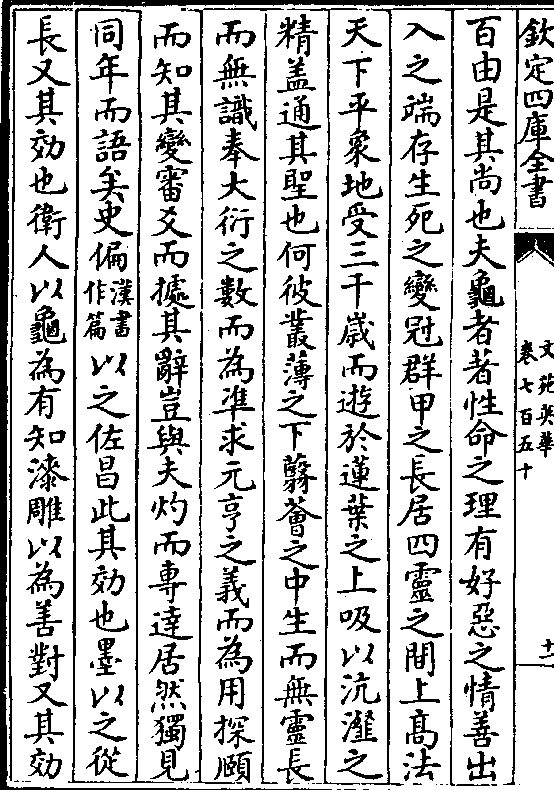 欽定四庫全書
文苑英華
卷七百五十
十一
百由是其尚也夫龜者著性命之理有好惡之情善出
入之端存生死之變冠群甲之長居四靈之間上髙法
天下平象地受三千嵗而遊於蓮葉之上吸以沆瀣之
精盖通其聖也何彼叢薄之下蘙薈之中生而無靈長
而無識奉大衍之數而為凖求元亨之義而為用探賾
而知其變審爻而據其辭豈與夫灼而專逹居然獨見
同年而語矣史偏漢書作篇以之佐昌此其効也墨以之從
長又其効也衛人以龜為有知漆雕以為善對又其効